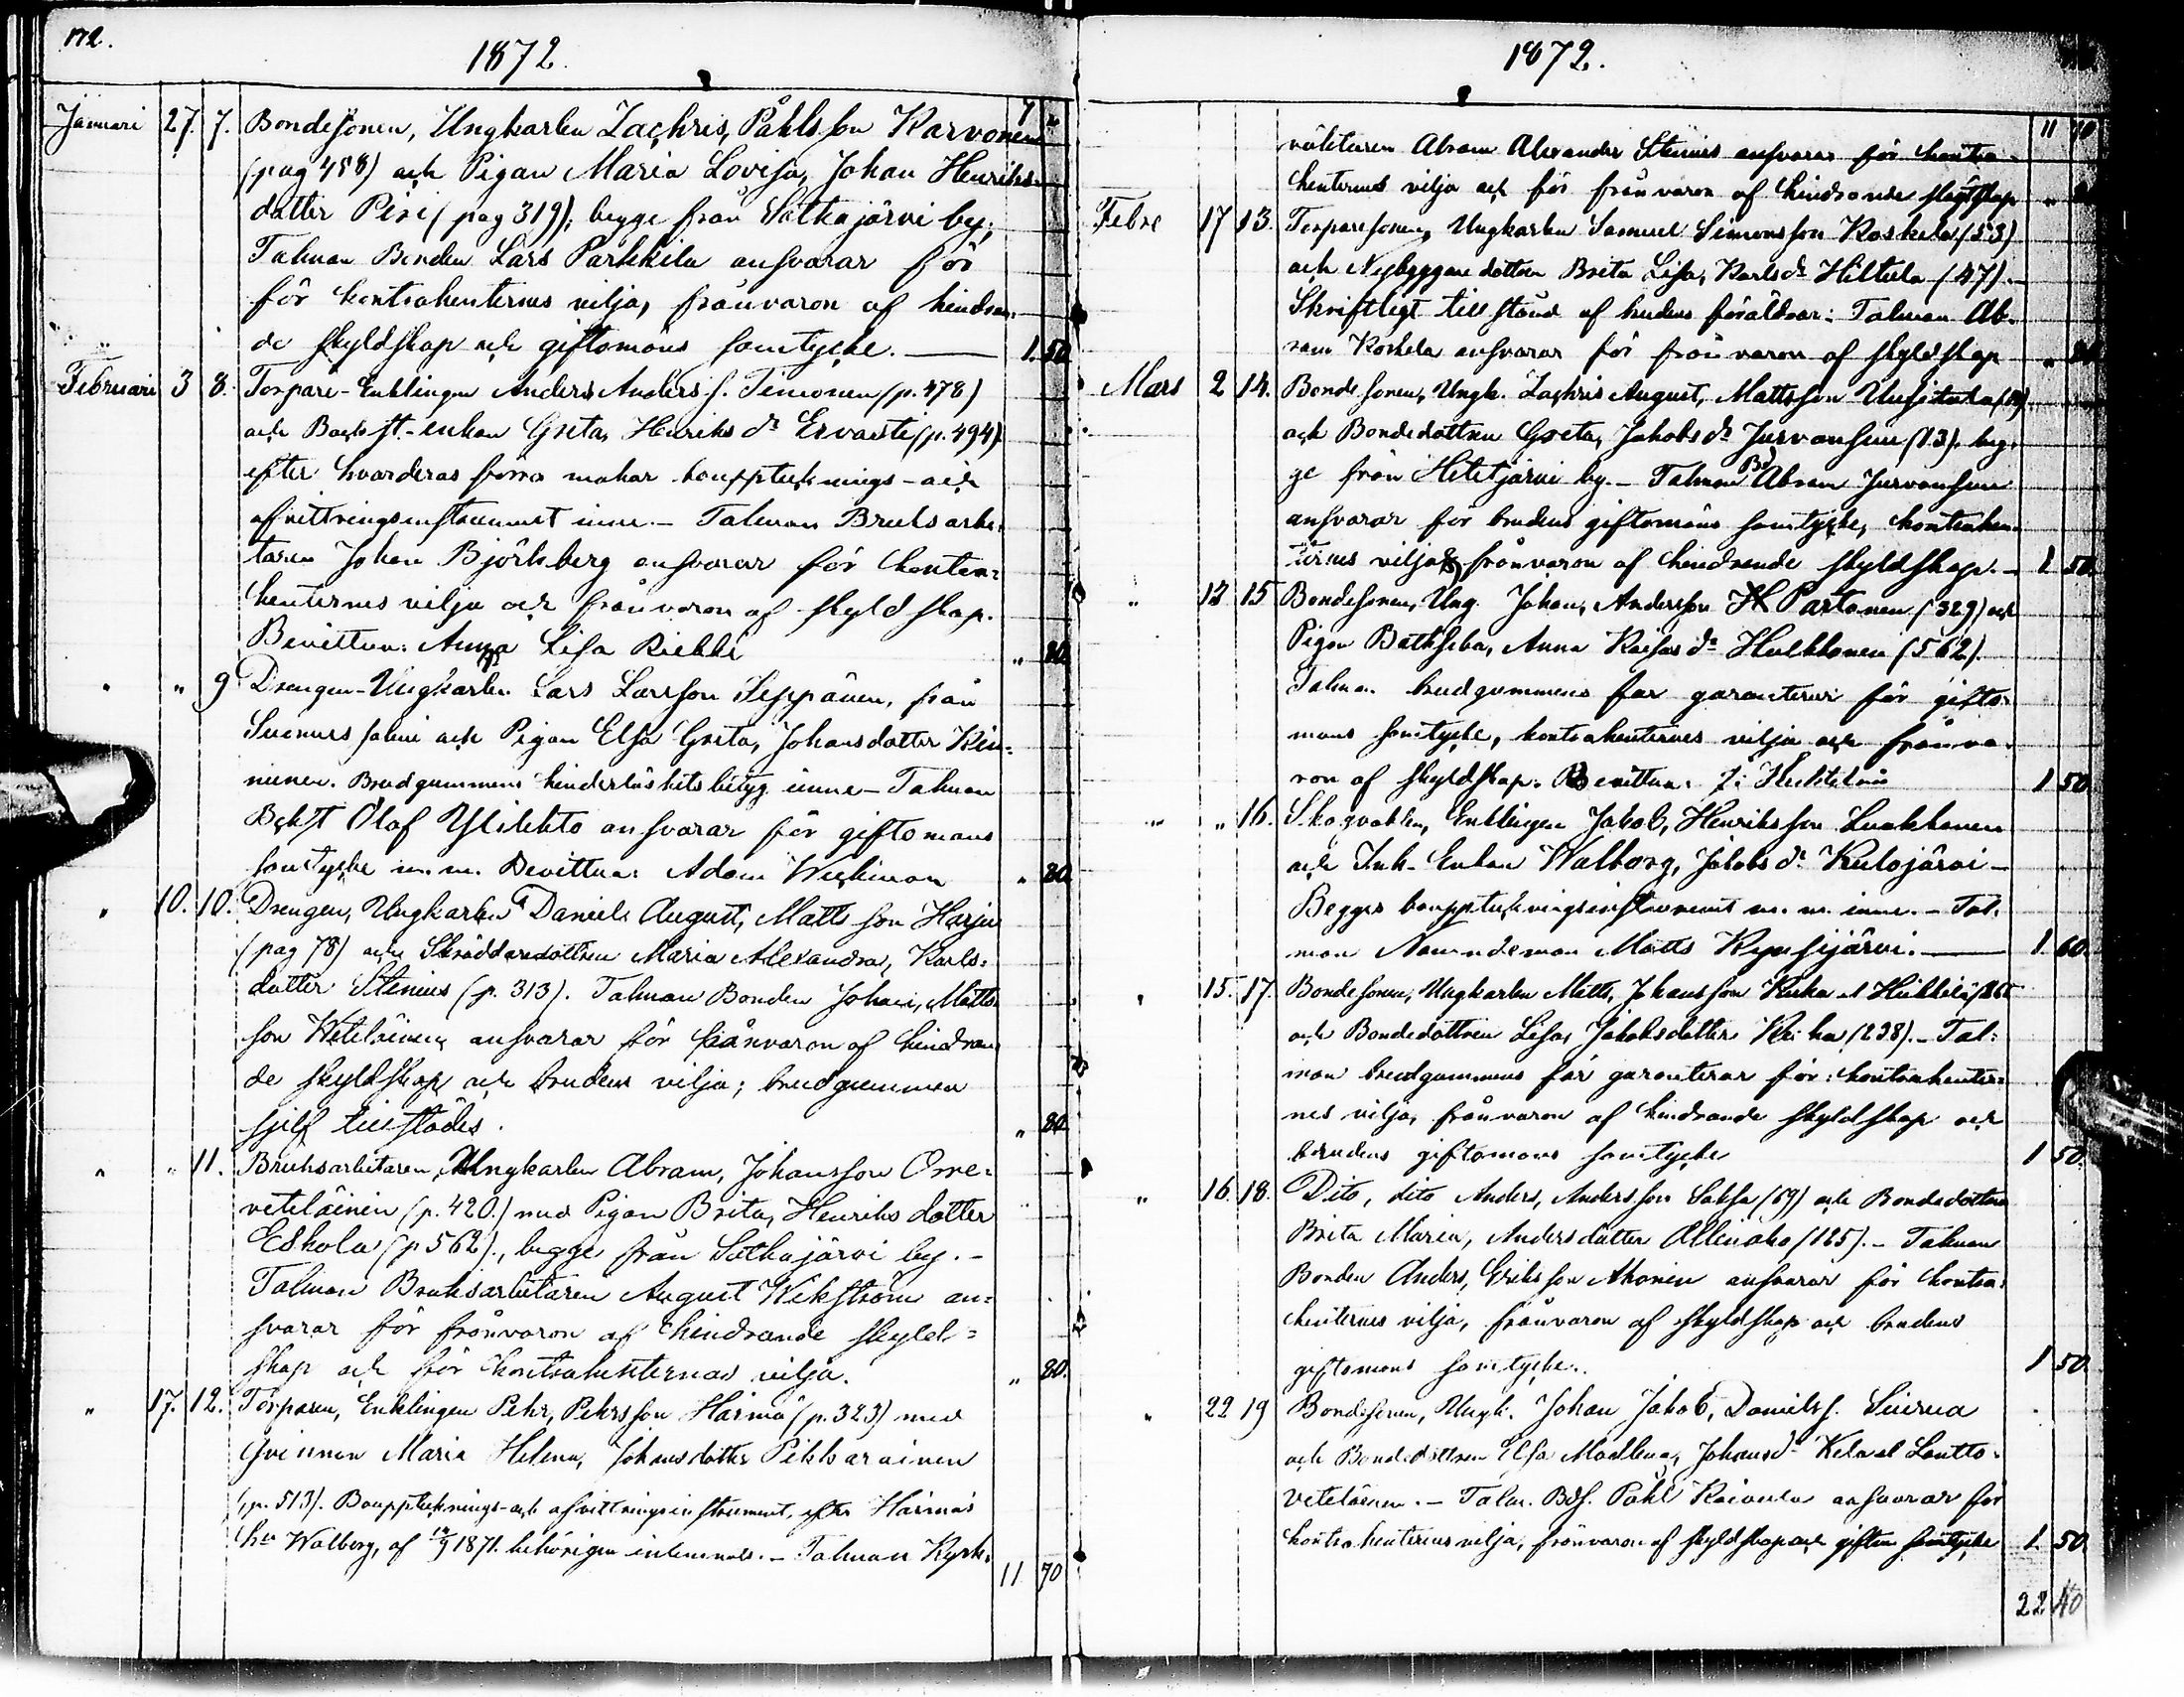 172.
1872.
7
Januari 27. 7. Bondesonen, Ungkarlen Zachris, Påhlsson Karvonen
(pag 458) och Pigan Maria Lovisa, Johan Henriks-
dotter Piri (pag 319), begge från Sotkajärvi by;
Talman Bonden Lars Parkkila ansvarar för
för kontrahenternes vilja, frånvaron af hindran-
de skyldskap och giftomans samtycke. 1. 50
Februari 3 8. Torpare-Enklingen Anders Anders s. Timonen (p. 478)
och Backst.-enkan Greta, Henriks dr Ervasti (p. 494)
efter hvarderas förra makar bouppteknings- och
afvittringsinstrument inne.- Talman Bruksarbe-
taren Johan Björkberg ansvarar för kontra-
henternes vilja och frånvaron af skyldskap.
Bevittnar: Anna Lisa Riekki „ 80
„ „ 9 Drengen-Ungkarlen Lars Larsson Seppänen, från
Suomussalmi och Pigan Elsa Greta, Johansdotter Kin-
nunen. Brudgummens hinderlöshetsbetyg inne- Talman
Bckst Olof Ylilehto ansvarar för giftomans
samtycke m.m. Bevittnar Adam Wickman „ 80
„ 10. 10. Drengen, Ungkarlen Daniel August, Matts son Harju
(pag 78) och Skräddaredottren Maria Alexandra, Karls-
dotter Stenius (p. 313). Talman Bonden Johan, Matts
son Weteläinen ansvarar för frånvaron af hindran
de skyldskap och brudens vilja; brudgummen
sjelf tillstädes. „ 80
„ „ 11. Bruksarbetaren, Ungkarlen Abram, Johansson Orre-
veteläinen (p. 420.) med Pigan Brita, Henriks dotter
Eskola (p 562)., begge från Sotkajärvi by.-
Talman Bruksarbetaren August Wikström an-
svarar för frånvaron af hindrande skyld-
skap och för kontrahenternas vilja. „ 80.
„ 17. 12. Torparen, Enklingen Pehr, Pehrsson Härmä (p. 323) med
Qvinnan Maria Helena, Johansdotter Pikkarainen
(p. 513). Bouppteknings- och afvittringsinstrument, efter Härmä's
hu Walborg, af 1871. behörigen inlemnade.- Talman Kyrk-
11 70
1872.
11 70
väktaren Abram Alexander Stenius ansvarar för kontra-
henternes vilja och för frånvaron af hindrande slägtskap „ 80
Febre 17 13. Torparesonen, Ungkarlen Samuel Simonsson Koskela (53)
och Nybyggaredottren Brita Lisa, Karlsdr Hiltula (47).-
Skriftligt tillstånd af brudens föräldrar: Talman Ab-
ram Koskela ansvarar för frånvaron af skyldskap „ 80
Mars 2 14. Bondesonen, Ungk. Zachris August, Mattsson Uusitalo
och Bondedottren Greta, Jakobs dr Jurvansuu (13). beg-
ge från Hetejärvi by.- Talman Bd Abram Jurvansuu
ansvarar för brudens giftomans samtycke, kontrahen-
ternes vilja & frånvaron af hindrande skyldskap.- 1 50.
„ 12 15 Bondesonen, Ung. Johan, Andersson Partanen (329) och
Pigan Bathseba, Anna Kaisas dr Hulkkonen (562).
Talman brudgummens far garanterar för gifto-
mans samtycke, kontrahenternes vilja och frånva-
ron af skyldskap. Bevittnar: 1 50
„ „ 16. Skogvakten, Enklingen Jakob, Henriksson Luukkonen
och Inh. Enkan Walborg, Jakobs dr Kulojärvi-
Begges bouppteckningsinstrument m. m. inne.- Tal-
man Nämndeman Matts Kynsijärvi. 1. 60.
„ 15. 17. Bondesonen, Ungkarlen Matts, Johansson
och Bondedottren Lisa, Jakobsdotter (238).- Tal-
man brudgummens får garanterar för: kontrahenter-
nes vilja, frånvaron af hindrande skyldskap och
brudens giftomans samtycke 1 50.
„ 16. 18. Dito, dito Anders, Andersson Saksa (69) och Bondedottren
Brita Maria, Andersdotter Alleniaho (125).- Talman
Bonden Anders, Eriksson Ahonen ansvarar för kontra-
henternes vilja, frånvaron af skyldskap och brudens
giftomans samtycke. 1 50
„ 22 19 Bondesonen, Ungk. Johan Jakob, Daniels s. Siurua
och Bondedottren Elsa Madlena, Johansdr Kela el Lantto-
veteläinen.- Talm. Bds. Påhl ansvarar för
kontrahenternes vilja, frånvaron af skyldskap och giftom samtycke 1. 50
22 40